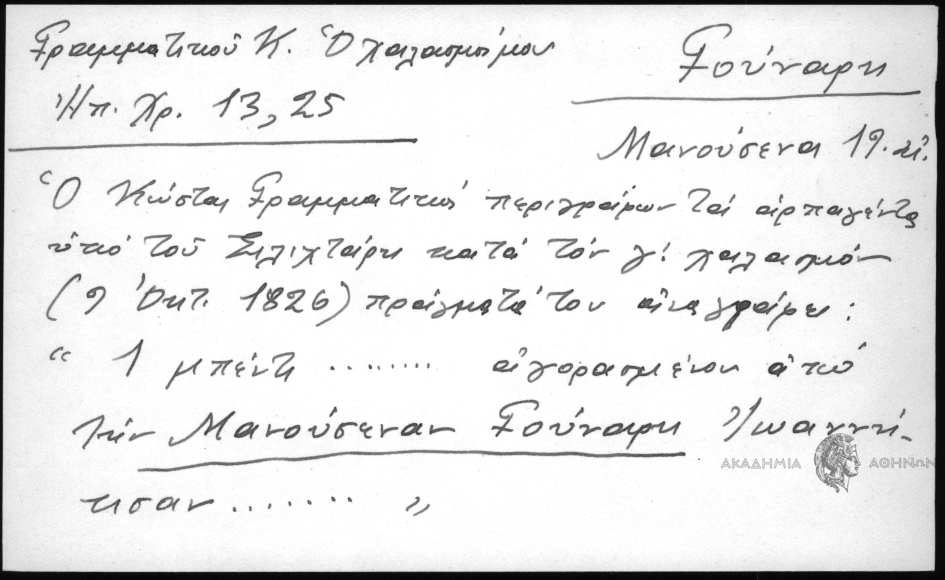 Γραμματικοῦ Κ. Ὁ χαλασμός μου
Ἠπ. Χρ. 13, 25
Γούναρη
Μανούσενα 19. αἰ.
Ὁ Κώστας Γραμματικός περιγράφων τά ἁρπαγέντα
ὑπό τοῦ Σιλιχτάρη κατά τόν γ΄ χαλασμόν
(9 Ὀκτ. 1826) πράγματά του ἀναγράφει:
" 1 μπέντι ........ ἀγορασμένον ἀπό
τήν Μανούσεναν Γούναρη Ἰωαννί-
τισαν ....... "
ΑΚΑΔΗΜΙΑ ΑΘΗΝΩΝ